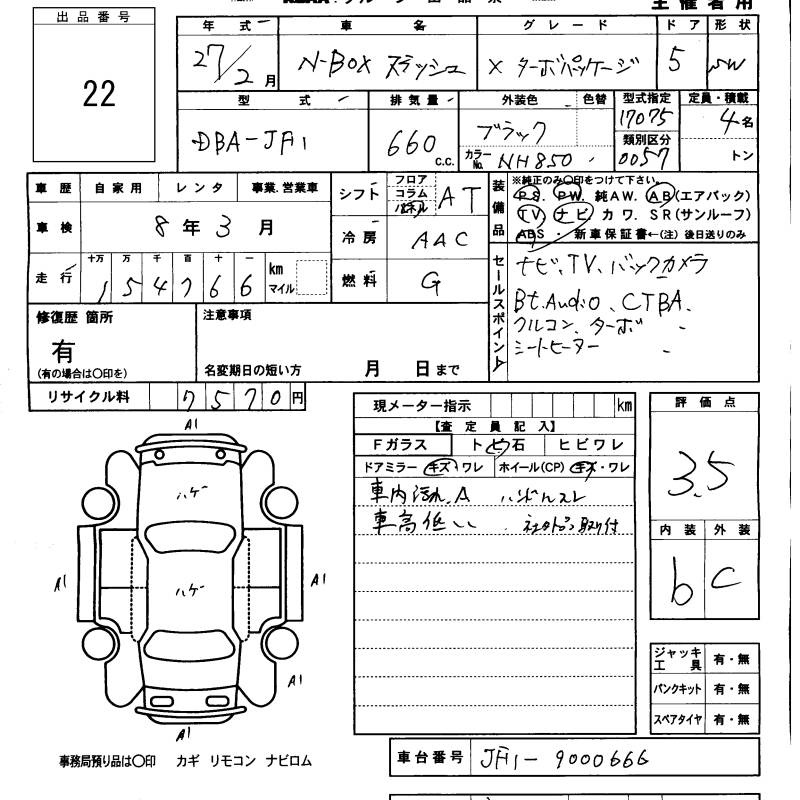 主催者用
出品番号
22
年式 車名 グレード ドア 形状
27/2月 N-BOX スラッシュ X ターボパッケージ 5 SW
型式 排気量 外装色 色替 型式指定 定員・積載
DBA-JF1 660 c.c. ブラック 17075 4名
カラーNo. NH850 類別区分 0057 トン
車歴 自家用 レンタ 事業.営業車
車検 8年3月
走行 十万 万 千 百 十 一
154766 km マイル
シフト フロア コラム パネル AT
冷房 AAC
燃料 G
装備品 ※純正のみ〇印をつけて下さい。
PS. PW. 純AW. AB(エアバック)
TV ナビ カワ. SR(サンルーフ)
ABS ・ 新車保証書←(注) 後日送りのみ
セールスポイント
ナビ、TV、バックカメラ
Bt.Audio、CTBA.
クルコン、ターボ
シートヒーター
修復歴 箇所
有
(有の場合は〇印を)
注意事項
名変期日の短い方 月 日まで
リサイクル料 7570円
現メーター指示 km
【査定員記入】
Fガラス トビ石 ヒビワレ
ドアミラー キズ・ワレ ホイール(CP) キズ・ワレ
車内汚れ.A ハンドルスレ
車高低い 取付
評価点
3.5
内装 外装
b C
A1
ハゲ
ハゲ
A1
A1
A1
A1
ジャッキ工具 有・無
パンクキット 有・無
スペアタイヤ 有・無
事務局預り品は〇印 カギ リモコン ナビロム
車台番号 JF1-9000666